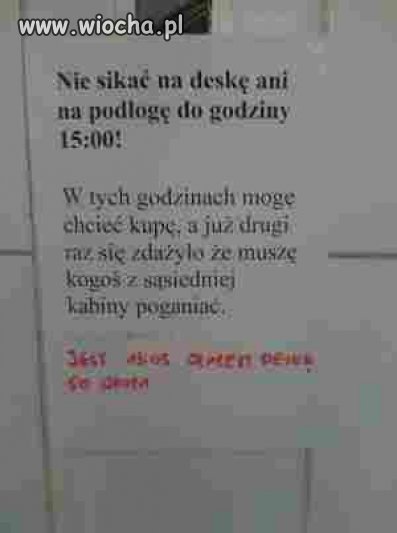 www.wiocha.pl
Nie sikać na deskę ani
na podlogę do godziny
15:00!
W tych godzinach mogę
chcieć kupę, a już drugi
raz się zdażyło że muszę
kogoś z sąsiedniej
kabiny poganiać.
JEST